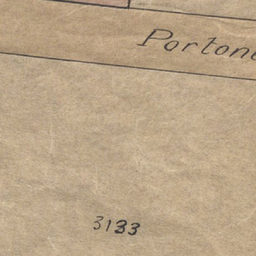 Porton
3133